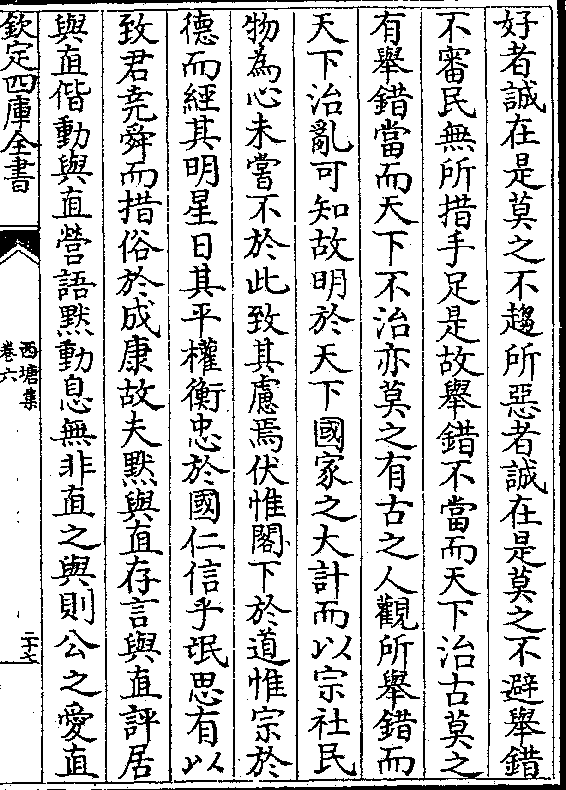 好者誠在是莫之不趨所惡者誠在是莫之不避舉錯
不審民無所措手足是故舉錯不當而天下治古莫之
有舉錯當而天下不治亦莫之有古之人觀所舉錯而
天下治亂可知故明於天下國家之大計而以宗社民
物為心未嘗不於此致其慮焉伏惟閣下於道惟宗於
德而經其明星日其平權衡忠於國仁信乎氓思有以
致君堯舜而措俗於成康故夫默與直存言與直評居
與直偕動與直營語默動息無非直之與則公之愛直
欽定四庫全書
西塘集
卷六
二十七